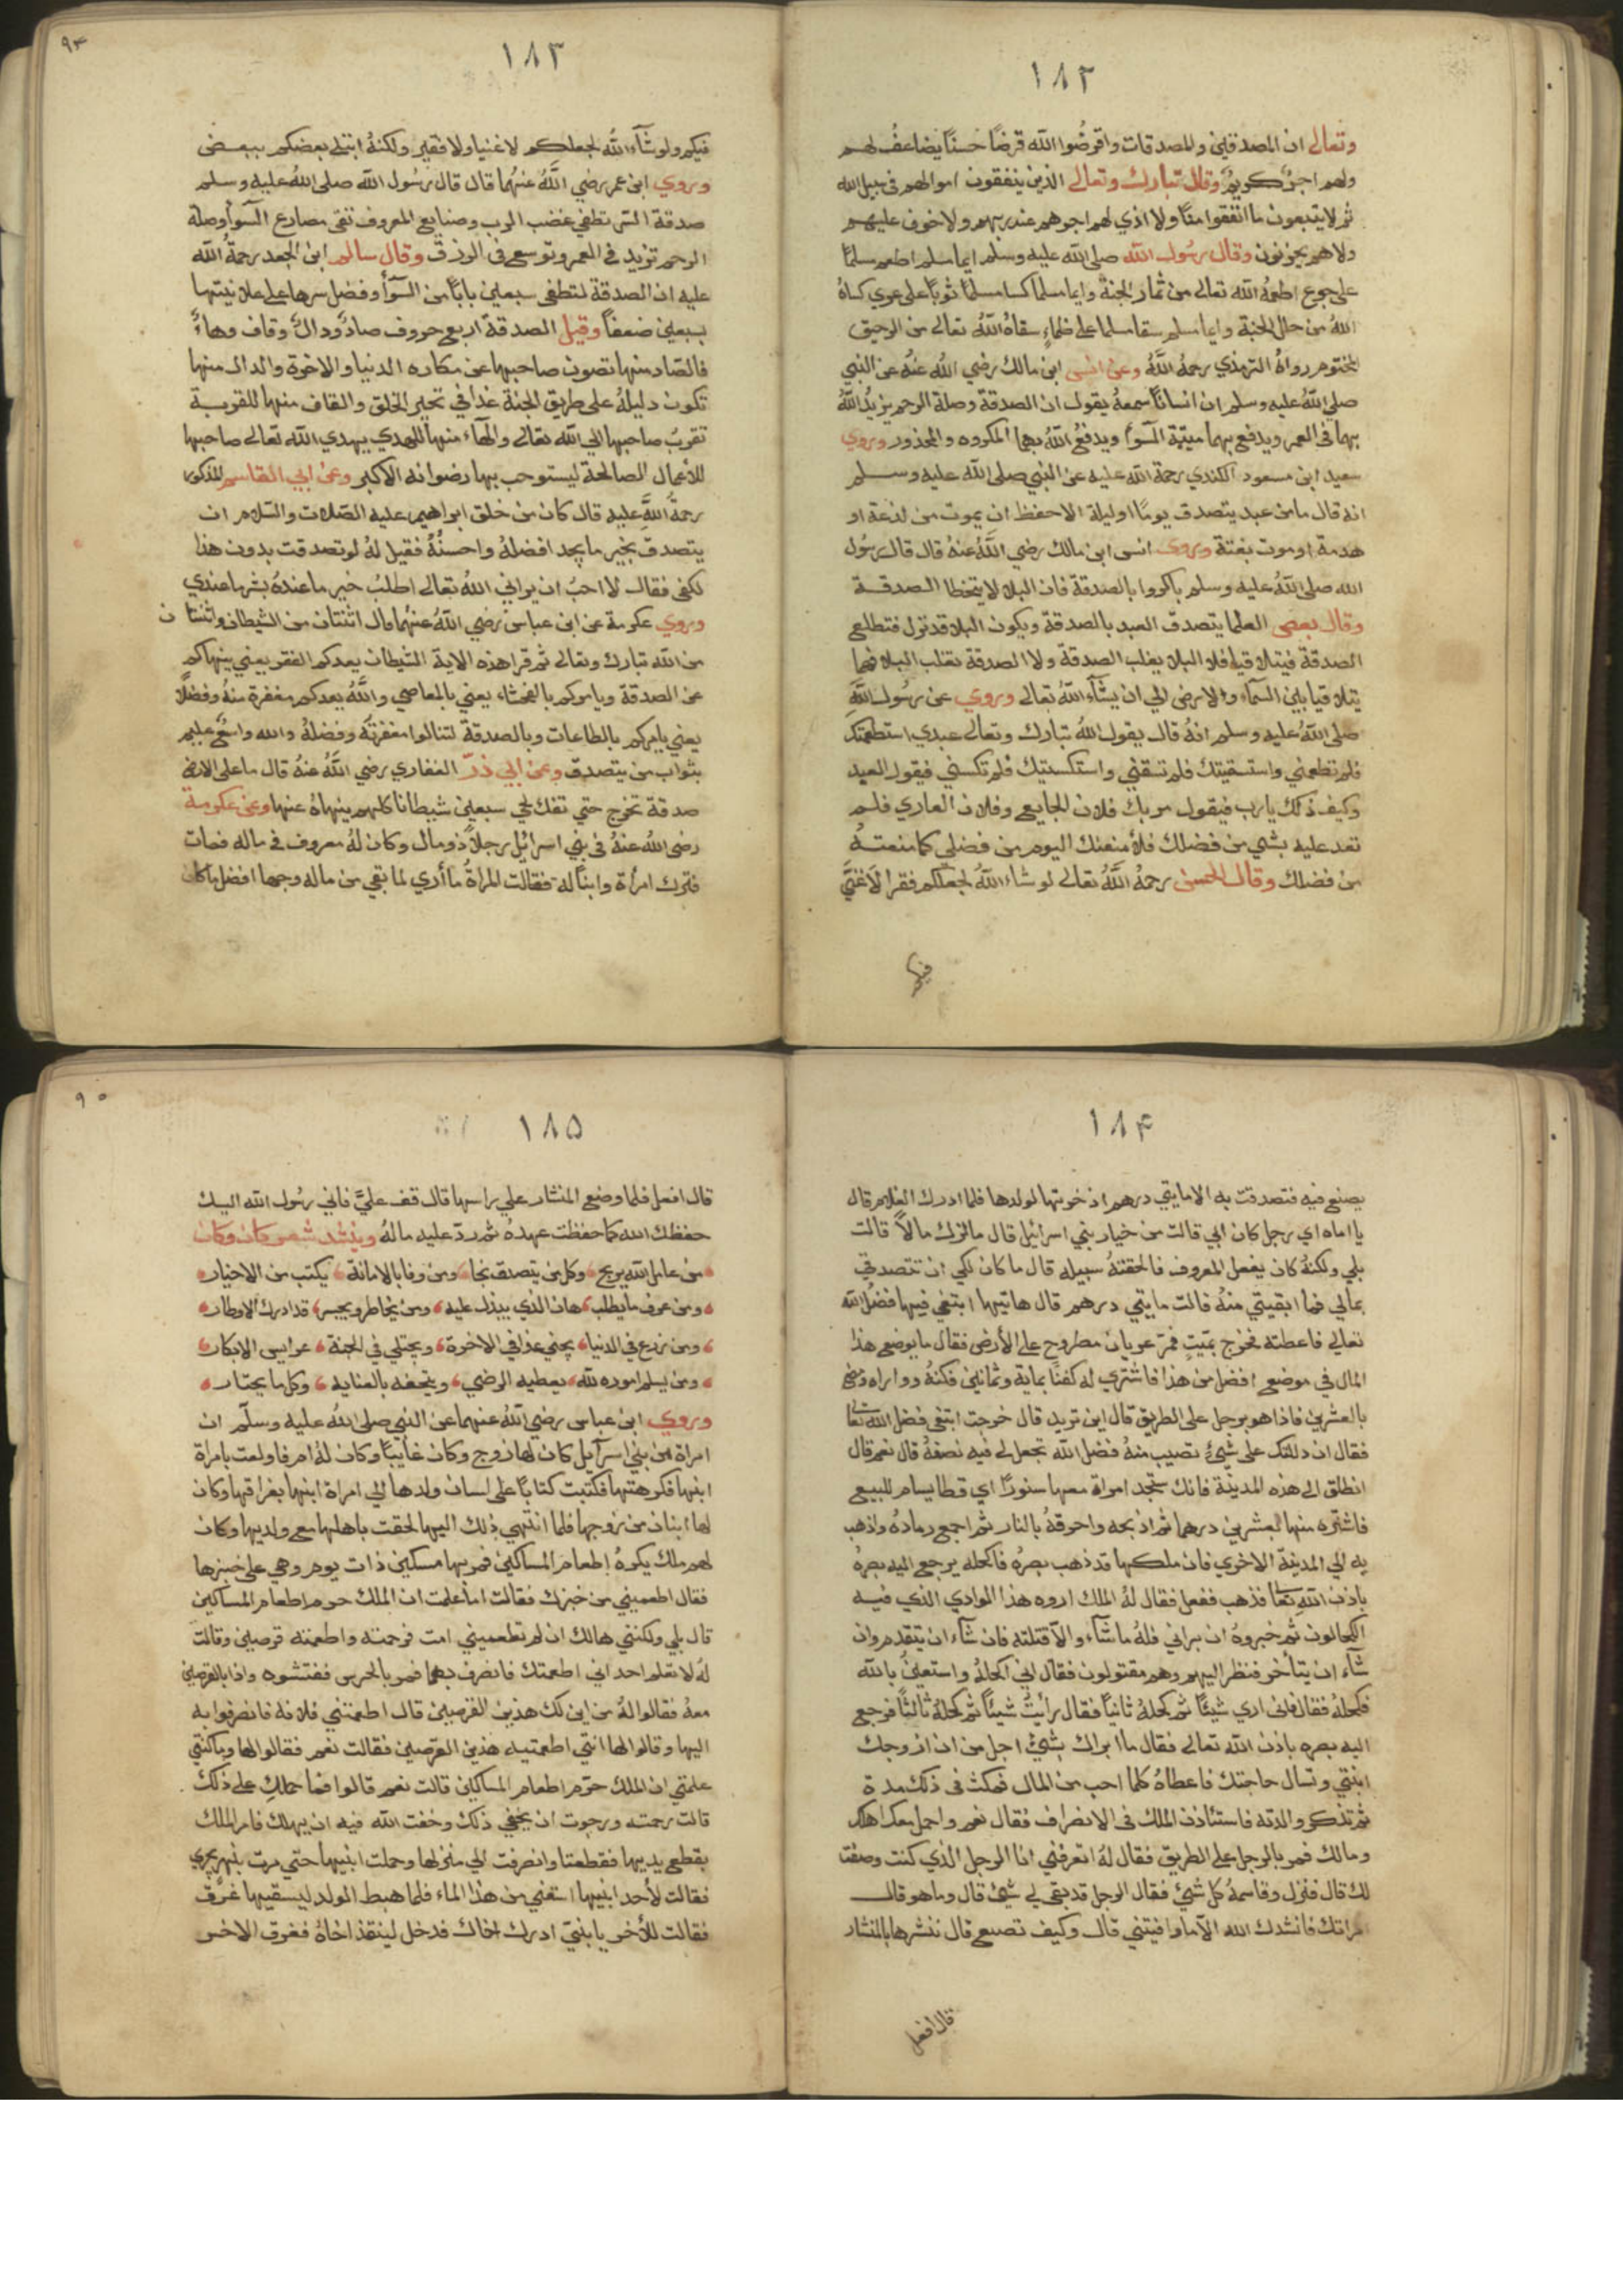 ١٨٢
وتعالى ان المصدقين والمصدقات واقرضوا الله قرضاً حسناً يضاعف لهم
ولهم اجرٌ كريمٌ وقال تبارك وتعالى الذين ينفقون اموالهم في سبيل الله
ثم لا يتبعون ما انفقوا منّا ولا اذي لهم اجرهم عند ربهم ولا خوف عليهم
ولا هم يحزنون وقال رسُول الله صلى الله عليه وسلم ايما مسلم اطعم مسلمًا
على جوع اطعمهُ الله تعالى من ثمار الجنة وايما مسلماً كسا مسلمًا ثوبًا على عري كساهُ
اللهُ من حلل الجنة وايما مسلم سقا مسلما على ظماءٍ سقاهُ اللهُ تعالى من الرحيق
المختوم رواهُ الترمذي رحمهُ اللهُ وعن انس ابن مالك رضي اللهُ عنهُ عن النبي
صلى اللهُ عليه وسلم ان انساناً سمعهُ يقول ان الصدقة وصلة الرحم يزيدُ اللهُ
بهما في العمر ويدفع بهما ميتة السّوأ ويدفعُ اللهُ بهما المكروه والمحذور وروي
سعيد ابن مسعود الكندي رحمة الله عليه عن النبي صلى الله عليه وسلم
انه قال ما من عبد يتصدق يومًا او ليلة الا حفظ ان يموت من لدغة او
هدمة او موت بغتة وروى انس ابن مالك رضي اللهُ عنهُ قال قال رسُول
الله صلى اللهُ عليه وسلم باكروا بالصدقة فان البلا لا يتخطا الصدقة
وقال بعض العلما يتصدق العبد بالصدقة ويكون البلا قد نزل فتطلع
الصدقة فيتلاقيا فلا البلا يغلب الصدقة ولا الصدقة تغلب البلا فهما
يتلاقيا بين السمآء والارض الي ان يشآء اللهُ تعالى وروي عن رسُول اللهِ
صلى اللهُ عليه وسلم انهُ قال يقول اللهُ تبارك وتعالى عبدي استطعمتك
فلم تطعمني واستسقيتك فلم تسقني واستكسيتك فلم تكسني فيقول العبد
وكيف ذلك يارب فيقول مر بك فلان الجايع وفلان العاري فلم
تعد عليه بشي من فضلك فلأ منعنك اليوم من فضلي كما منعتهُ
من فضلك وقال الحسن رحمهُ اللهُ تعالى لو شاء اللهُ لجعلكم فقرا لا غنيَّ
فيكم
٩٤
١٨٣
فيكم ولو شآء اللهُ لجعلكم لا غنيا ولا فقير ولكنهُ ابتلى بعضكم ببعض
وروي ابن عمر رضي اللهُ عنهُما قال قال رسُول الله صلى اللهُ عليه وسلم
صدقة السّر تطفي غضب الرب وصنايع المعروف تقى مصارع السّوأ وصلة
الرحم تزيد في العمر وتوسع في الرزق وقال سالم ابن الجعد رحمة الله
عليه ان الصدقة لتطفى سبعين باباً من السّوأ وفضل سرها على علانيتها
بسبعين ضعفاً وقيل الصدقة اربع حروف صادٌ ودالٌ وقاف وهاءً
فالصّاد منها تصون صاحبها عن مكاره الدنيا والاخرة والدال منها
تكون دليلهُ على طريق الجنة غداً في تحير الخلق والقاف منها للقربة
تقربُ صاحبها الي الله تعالى والهآء منها للهدي يهدي الله تعالى صاحبها
للأعمال الصالحة ليستوجب بها رضوانه الاكبر وعن ابي القاسم المذكور
رحمةُ اللهِ عليه قال كان من خلق ابراهيم عليه الصّلات والسّلام ان
يتصدق بخير ما يجد افضلهُ واحسنُهُ فقيل لهُ لو تصدقت بدون هذا
لكفى فقال لا احبُ ان يراني اللهُ تعالى اطلبُ خير ما عندهُ بشر ما عندي
وروي عكرمة عن ابن عباس رضي اللهُ عنهُما قال اثنتان من الشيطان واثنتان
من الله تبارك وتعالى ثم قرا هذه الاية الشيطان يعدكم الفقر يعني ينهاكم
عن الصدقة ويامركم بالفحشاء يعني بالمعاصي واللهُ يعدكم مغفرة منهُ وفضلًا
يعني يامركم بالطاعات وبالصدقة لتنالوا مغفرتَه وفضلهُ والله واسعٌ عليم
بثواب من يتصدق وعن ابي ذرّ الغفاري رضي اللهُ عنهُ قال ما على الارض
صدقة تخرج حتي تفك لحي سبعين شيطانا كلهم ينهاهُ عنها وعن عكرمة
رضى اللهُ عنهُ في بني اسرائيل رجلاً ذو مال وكان لهُ معروف في ماله فمات
فترك امرأة وابنًا له فقالت المراةُ ما أري لما بقي من ماله وجها افضل ما كان
١٨٤
يصنع فيه فتصدقت به الا مايتي درهم اذ خرتها لولدها فلما ادرك الغلام قال
يا اماه اي رجل كان ابي قالت من خيار بني اسرائيل قال ما ترك مالاً قالت
بلي ولكنهُ كان يفعل المعروف فالحقتهُ سبيله قال ما كان لكي ان تتصدقي
بمالي فما ابقيتي منهُ قالت مايتي درهم قال هاتيها ابتغي فيها فضل الله
تعالي فاعطته فخرج بميّتٍ فمرّ عريان مطروح على الأرض فقال ما يوضع هذا
المال في موضع افضل من هذا فاشتري له كفنًا بماية وثمانين فكفنهُ وواراه
بالعشرين فاذا هو برجل على الطريق قال اين تريد قال خرجت ابتغى فضل الله تعا
فقال ان دللتك على شيٍ تصيب منهُ فضل الله تجعل لي فيه نصفهُ قال نعم قال
انطلق الى هذه المدينة فانك ستجد امراة معها سنورًا اي قطا يسام للبيع
فاشتره منها بالعشرين درهما ثم اذبحه واحرقهُ بالنار ثم اجمع رمادهُ واذهب
به الي المدينة الاخري فان ملكها قد ذهب بصرُه فاكحله يرجع اليه بصرهُ
باذن اللهِ تعا فذهب ففعل فقال لهُ الملك اروه هذا الوادي الذي فيه
الكحالون ثم خبروهُ ان براني فلهُ ما شآء والّا قتلته فان شآء ان يتقدم وان
شآء ان يتأخر فنظر اليهم وهم مقتولون فقال اني اكحلهُ واستعينُ بالله
فكحلهُ فقال فاني اري شيئًا ثم كحلهُ ثانياً فقال رأيتُ شيئًا ثم كحلهُ ثالثًا فرجع
اليه بصره باذن الله تعالى فقال ما ابراك بشيٍ اجل من ان ازوجك
ابنتي وتسال حاجتك فاعطاهُ كلما احب من المال فمكث في ذلك مدة
ثم تذكر والدته فاستئاذن الملك في الانصراف فقال نعم واحمل معك اهلك
ومالك فمر بالرجل على الطريق فقال لهُ اتعرفني انا الرجل الذي كنت وصفت
لك قال فنزل وقاسمهُ كل شيٍ فقال الرجل قد بقي لي شيٍ قال وما هو قال
امراتك فانشدك الله الّا ما وافيتني قال وكيف تصنع قال ننشرها بالمنشار
قال افعل
٩٥
١٨٥
قال افعل فلما وضع المنشار على راسها قال قف عليَّ فاني رسُول الله اليك
حفظك الله كما حفظت عهدهُ ثم ردّ عليه مالهُ وينشد شعر كان وكان
من عامل الله يربح وكل من يتصدق نجا ومن وفا بالامانة يكتب من الاخيار
ومن عرف ما يطلب هان الذي يبذل عليه ومن يخاطر ويجسر قد ادرك الاوطار
ومن زرع في الدنيا يجني غدا في الاخرة ويجتلي في الجنة عرايس الابكار
ومن يسلم اموره لله يعطيه الرضي ويتحفه بالعنايه وكل ما يختار
وروي ابن عباس رضي اللهُ عنهما عن النبي صلى اللهُ عليه وسلّم ان
امراة من بني اسرآيل كان لها زوج وكان غايبًا وكان لهُ ام فاولعت بامراة
ابنها فكرهتها فكتبت كتابًا على لسان ولدها الي امراة ابنها بفراقها وكان
لها ابنان من زوجها فلما انتهي ذلك اليها لحقت باهلها مع ولديها وكان
لهم ملك يكرهُ إطعام المساكين فمر بها مسكين ذات يوم وهي على خبزها
فقال اطعميني من خبزك فقالت اما علمت ان الملك حرم اطعام المساكين
قال بلي ولكنني هالك ان لم تطعميني امت فرحمته واطعمته قرصين وقالت
لهُ لا تعلم احد اني اطعمتك فانصرف بهما فمر بالحرس ففتشوه واذا بالقرصين
معهُ فقالوا لهُ من اين لك هذين القرصين قال اطعمتني فلانة فانصرفوا به
اليها وقالوا لها انتي اطعمتيه هذين القرصين فقالت نعم فقالوا لها وما كنتي
علمتي ان الملك حرّم اطعام المساكين قالت نعم قالوا فما حملكِ على ذلك
قالت رحمته ورجوت ان يخفي ذلك وخفت الله فيه ان يهلك فامر الملك
بقطع يديها فقطعتا وانصرفت الي منزلها وحملت ابنيها حتي مرت بنهر يجري
فقالت لأحد ابنيها اسقني من هذا الماء فلما هبط الولد ليسقيها غرق
فقالت للأخر يا بنيّ ادرك اخاك فدخل لينقذ اخاهُ فغرق الاخر